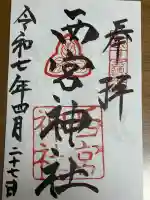 奉拝
西宮神社
令和七年四月二十七日